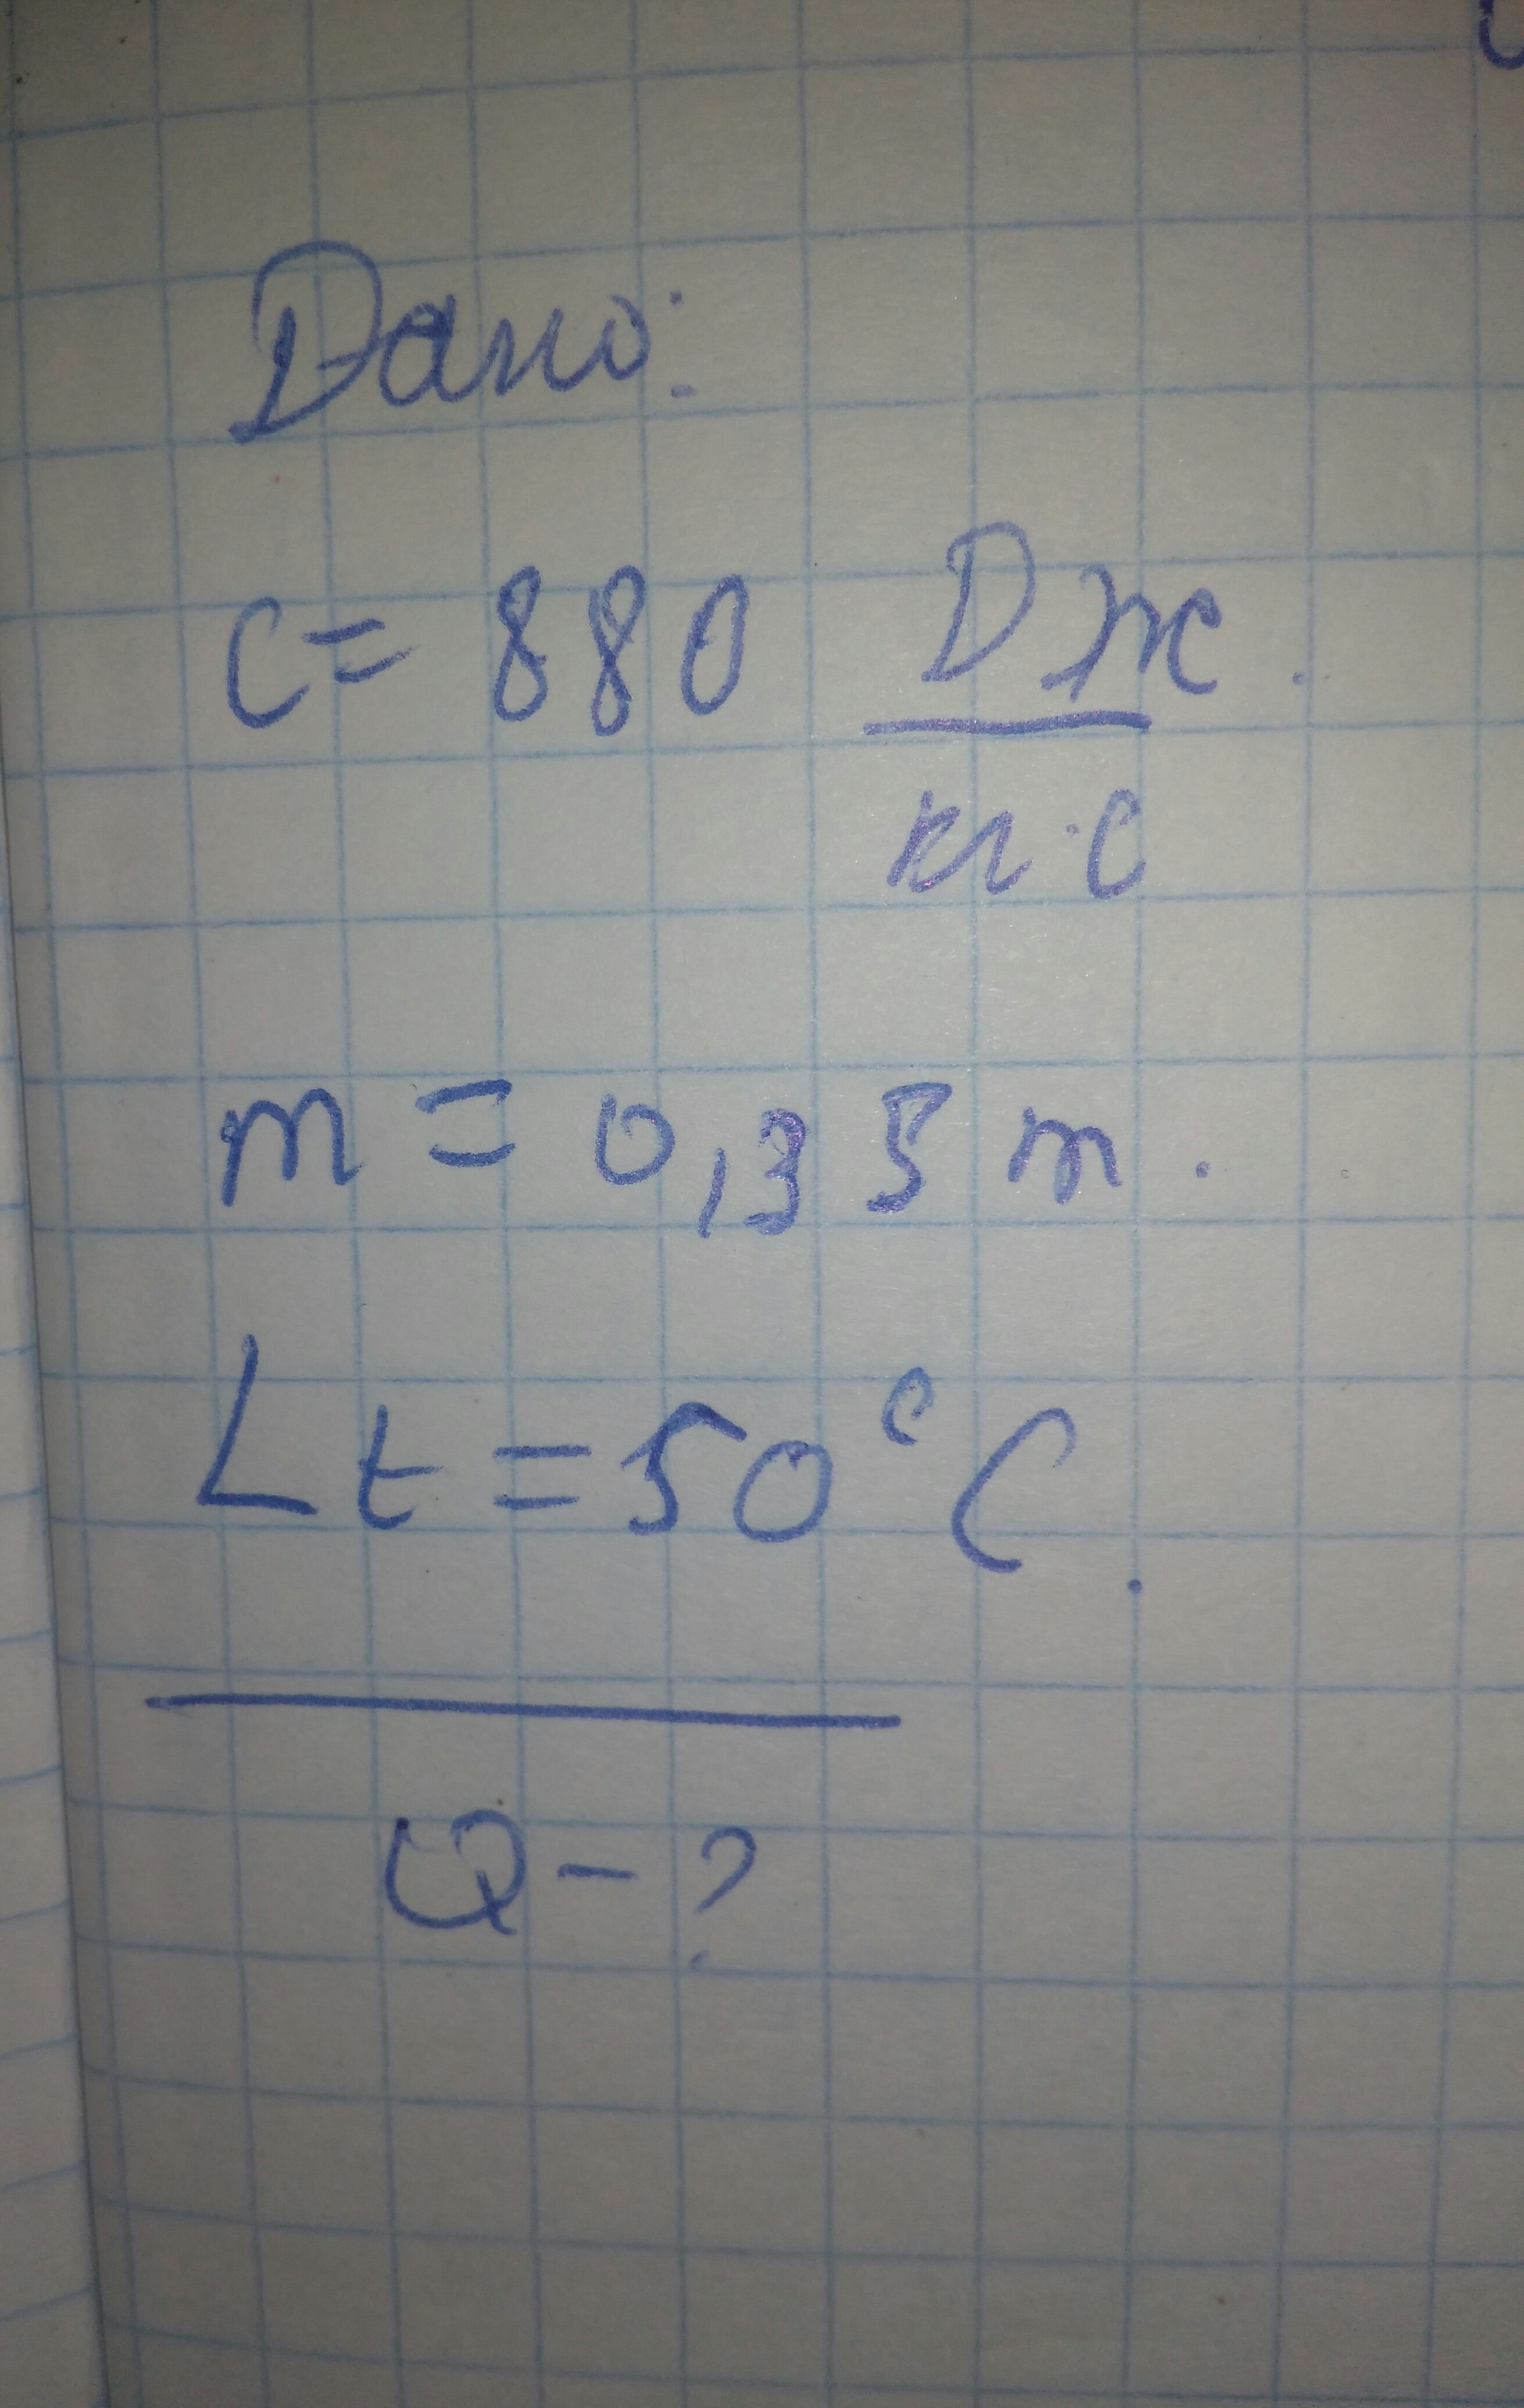 Дано:
c = 880 Дж.
кг·С
m = 0,35 т.
Lt = 50°C.
Q - ?